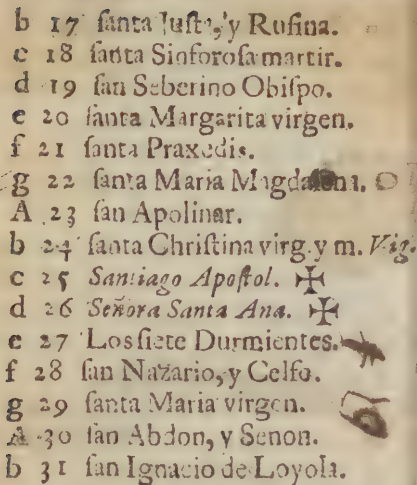 b 17 ſanta Juſta, y Rufina.
c 18 ſanta Sinforoſa martir.
d 19 ſan Seberino Obiſpo.
e 20 ſanta Margarita virgen.
f 21 ſanta Praxedis.
g 22 ſanta Maria Magdalena.
A 23 ſan Apolinar.
b 24 ſanta Chriſtina virg. y m. Vig.
c 25 Santiago Apoſtol. ✠
d 26 Señora Santa Ana. ✠
e 27 Los ſiete Durmientes.
f 28 ſan Nazario, y Celſo.
g 29 ſanta Maria virgen.
A 30 ſan Abdon, y Senon.
b 31 ſan Ignacio de Loyola.